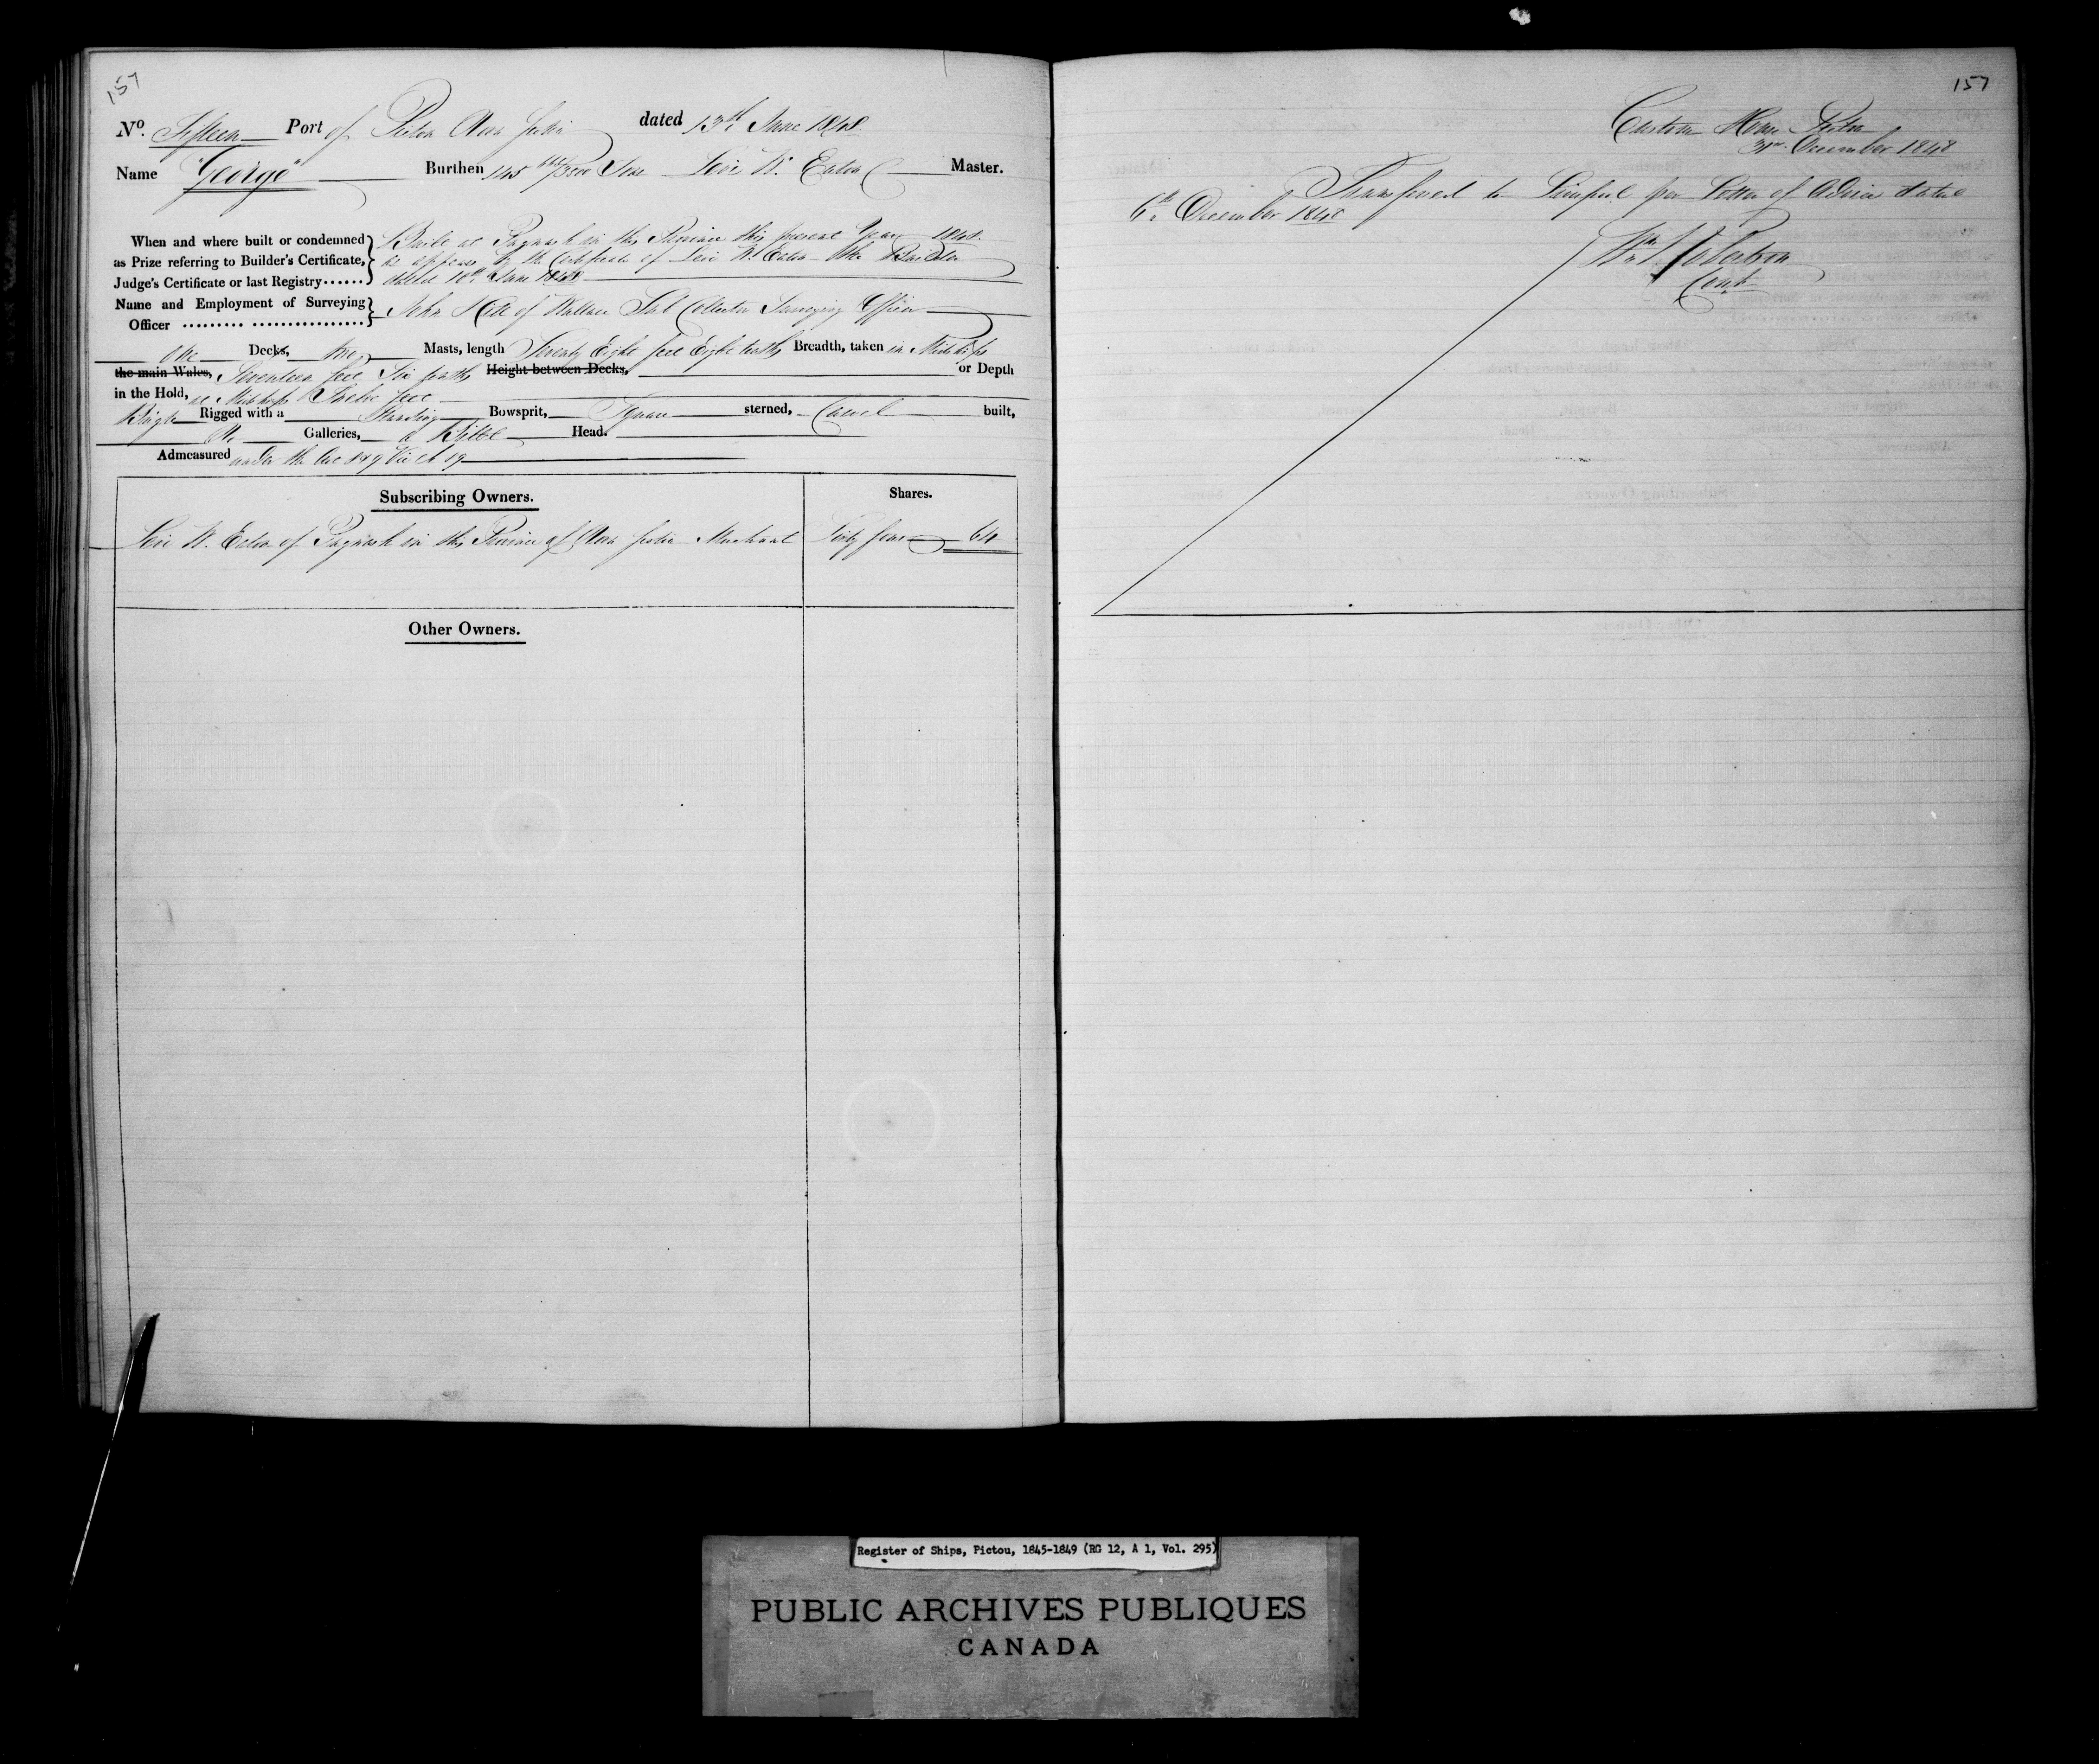 157
No. Fifteen Port of Pictou Nova Scotia dated 13th June 1848
Name "George" Burthen 145 /3500 Tons Levi W. Eaton Master.
When and where built or condemned Built at Pugwash in this Province this present Year 1848.
as Prize referring to Builder's Certificate, as appears by the Certificate of Levi W. Eaton the Builder
Judge's Certificate or last Registry...... dated 10th June 1848
Name and Employment of Surveying
Officer ......... ................ John of Wallace Sub Collector Surveying Officer
One Decks, two Masts, length Seventy Eight feet Eight tenths Breadth, taken in Midships
the main Wales, Seventeen feet Six tenths Height between Decks, or Depth
in the Hold, at Midships Twelve feet
Brigt Rigged with a Standing Bowsprit, Square sterned, Carvel built,
No Galleries, a Billet Head.
Admeasured under the Act 8 & 9 Vic Ch 89
Subscribing Owners. Shares.
Levi W. Eaton of Pugwash in this Province of Nova Scotia Merchant Sixty four 64
Other Owners.
157
Custom House Pictou
December 1848
Transferred to Liverpool per Letter of Advice dated
6th December 1848
Wm Robertson
Comp
Register of Ships, Pictou, 1845-1849 (RG 12, A 1, Vol. 295)
PUBLIC ARCHIVES PUBLIQUES
CANADA